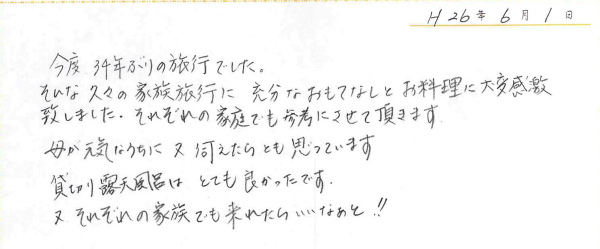 H26年6月1日
今度、34年ぶりの旅行でした。
そんな久々の家族旅行に 充分なおもてなしとお料理に大変感激
致しました。それぞれの家庭でも参考にさせて頂きます
母が元気なうちに又伺えたらとも思っています
貸切り露天風呂は とても良かったです.
又それぞれの家族でも来れたらいいなぁと!!